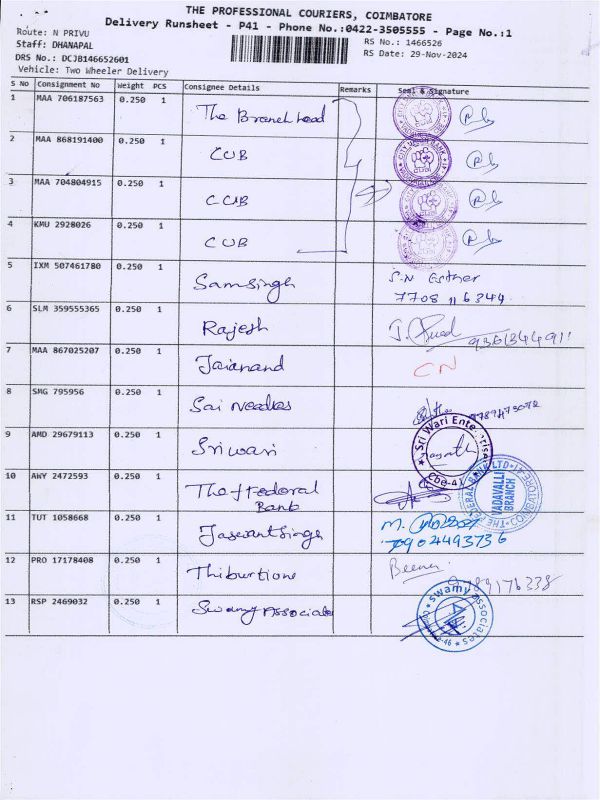 THE PROFESSIONAL COURIERS, COIMBATORE
Delivery Runsheet - P41 - Phone No.:0422-3505555 - Page No.:1
Route: N PRIVU
Staff: DHANAPAL
DRS No.: DCJB146652601
Vehicle: Two Wheeler Delivery
RS No.: 1466526
RS Date: 29-Nov-2024
S No Consignment No Weight PCS Consignee Details Remarks Seal & Signature
1 MAA 706187563 0.250 1 The Branch head
2 MAA 868191400 0.250 1 CUB CITY UNION BANK
3 MAA 704804915 0.250 1 CUB
4 KMU 2928026 0.250 1 CUB
5 IXM 507461780 0.250 1 Samsingh S.N Esther
7708 116344
6 SLM 359555365 0.250 1 Rajesh 9361344911
7 MAA 867025207 0.250 1 Jaianand CN
8 SMG 795956 0.250 1 Sai Needles
9 AMD 29679113 0.250 1 Sriwari Sri Wari Enterprise
Cbe-41
10 AWY 2472593 0.250 1 The Federal
Bank
VADAVALLI
BRANCH
11 TUT 1058668 0.250 1 Jaswant Singh M.
79024493736
12 PRO 17178408 0.250 1 Thiburtione Beena
9789176338
13 RSP 2469032 0.250 1 Swamy Associate swamy associates